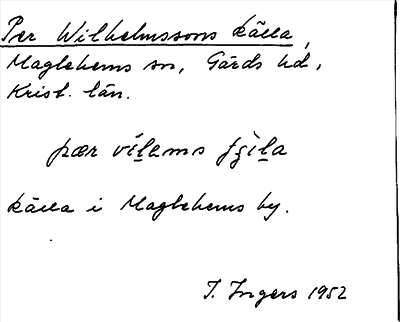 Per Wilhelmssons källa,
Maglehems sn, Gärds hd,
Krist. län.
pær vílems
källa i Maglehems by.
I. Ingers 1952